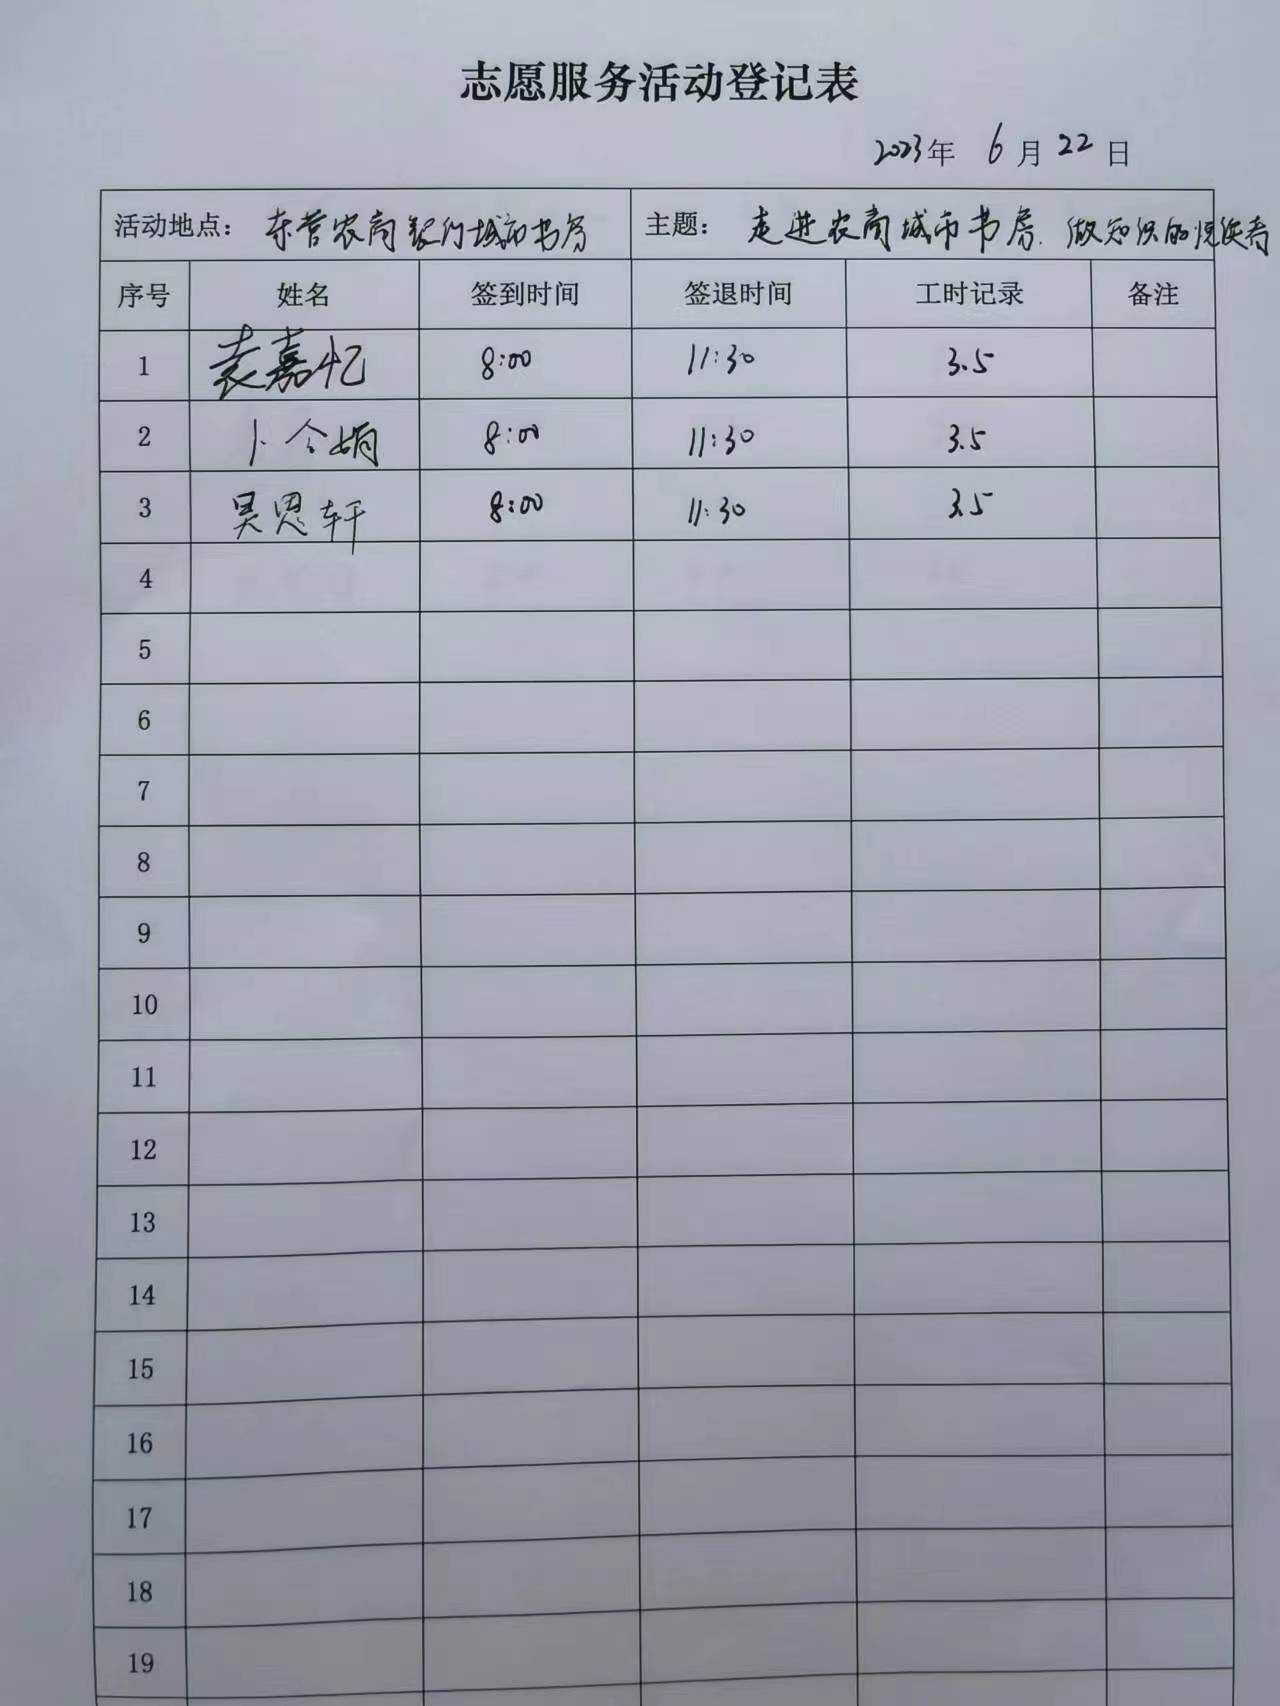 志愿服务活动登记表
2023年 6月22日
活动地点：东营农商银行城市书房 主题：走进农商城市书房.做知识的传使者
序号 姓名 签到时间 签退时间 工时记录 备注
1 袁嘉忆 8:00 11:30 3.5
2 卜令娟 8:00 11:30 3.5
3 吴恩轩 8:00 11:30 3.5
4
5
6
7
8
9
10
11
12
13
14
15
16
17
18
19